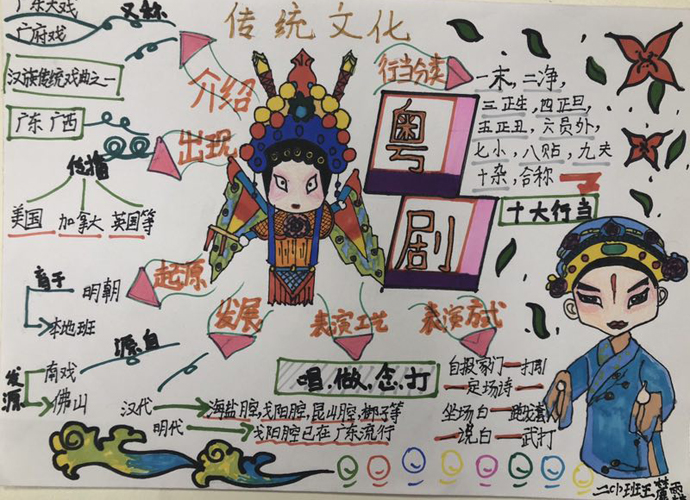 传统文化
广东大戏
又称
广府戏
介绍
汉族传统戏曲之一
广东 广西
出现
传播
美国 加拿大 英国等
起源
明朝
本地班
源自
发源
南戏
佛山
发展
汉代
海盐腔,弋阳腔,昆山腔,梆子等
明代
弋阳腔已在广东流行
粤
剧
行当分类
一末,二净,
三正生,四正旦,
五正丑,六员外,
七小,八贴,九夫
十杂,合称
十大行当
表演工艺
唱.做.念.打
表演方式
自报家门
打引
定场诗
坐场白
说白
武打